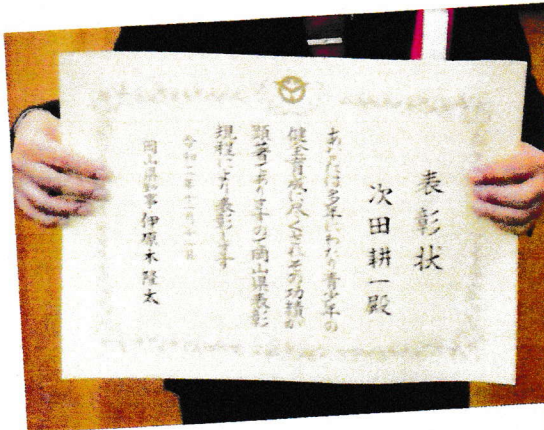 表彰状
次田耕一殿
あなたは多年にわたり青少年の
健全育成に尽くされその功績が
顕著でありますので岡山県表彰
規程により表彰します
令和二年十一月
岡山県知事 伊原木隆太